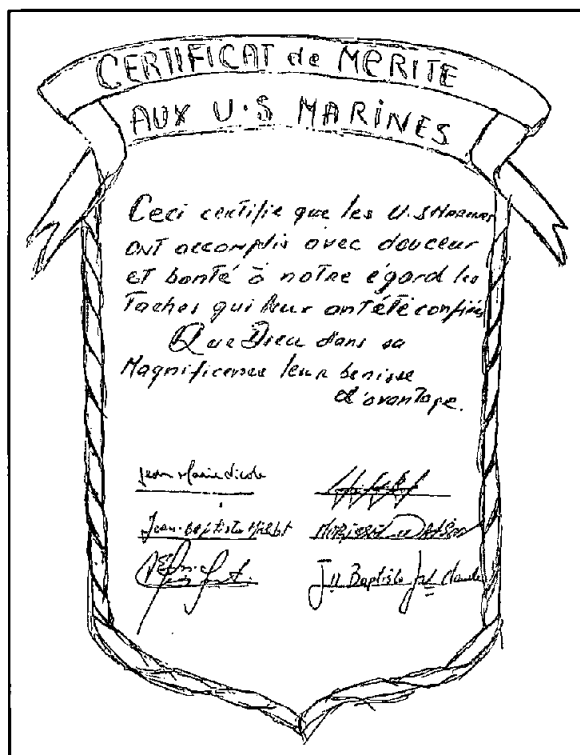 CERTIFICAT de MERITE
AUX U.S MARINES
Ceci certifie que les U.S Marines
ONT accomplis avec douceur
et bonté à notre égard les
Taches qui leur ont été confiées
Que Dieu dans sa
Magnificence leur benisse
d'avantage.
Jean Marie Nicole
Jean-Baptiste
Jn Baptiste Jn Claude